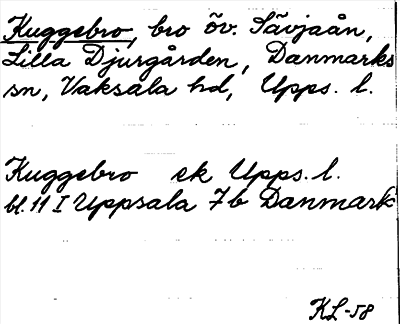 Kuggebro, bro öv. Sävjaån,
Lilla Djurgården, Danmarks
sn, Vaksala hd, Upps. l.
Kuggebro ek Upps. l.
bl. 11 I Uppsala 7b Danmark
KL-58